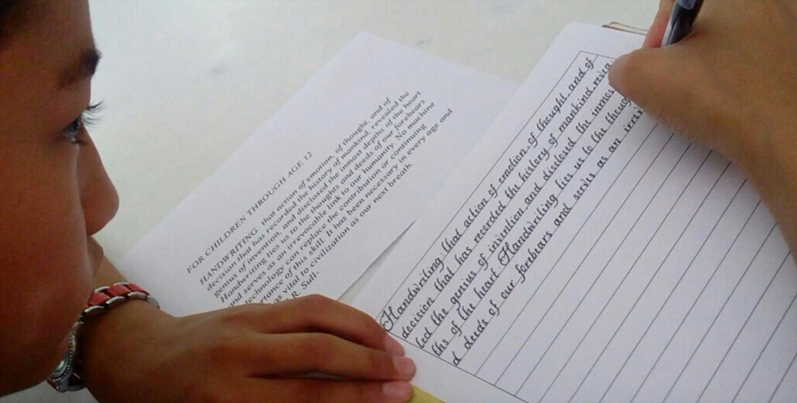 FOR CHILDREN THROUGH AGE 12
HANDWRITING - that action of emotion, of thought, and of
decision that has recorded the history of mankind, revealed the
genius of invention, and disclosed the inmost depths of the heart
Handwriting ties us to the thoughts and deeds of our forebears
and serves as an irrevocable link to our humanity. No machine
technology can replace the contribution or continuing
rtance of this skill. It has been necessary in every age and
as vital to civilization as our next breath.
R. Sull-
Handwriting: that action of emotion, of thought, and of
decision that has recorded the history of mankind,
led the genius of invention, and disclosed the
ths of the heart. Handwriting ties us to the
d deeds of our forebears and servis as an